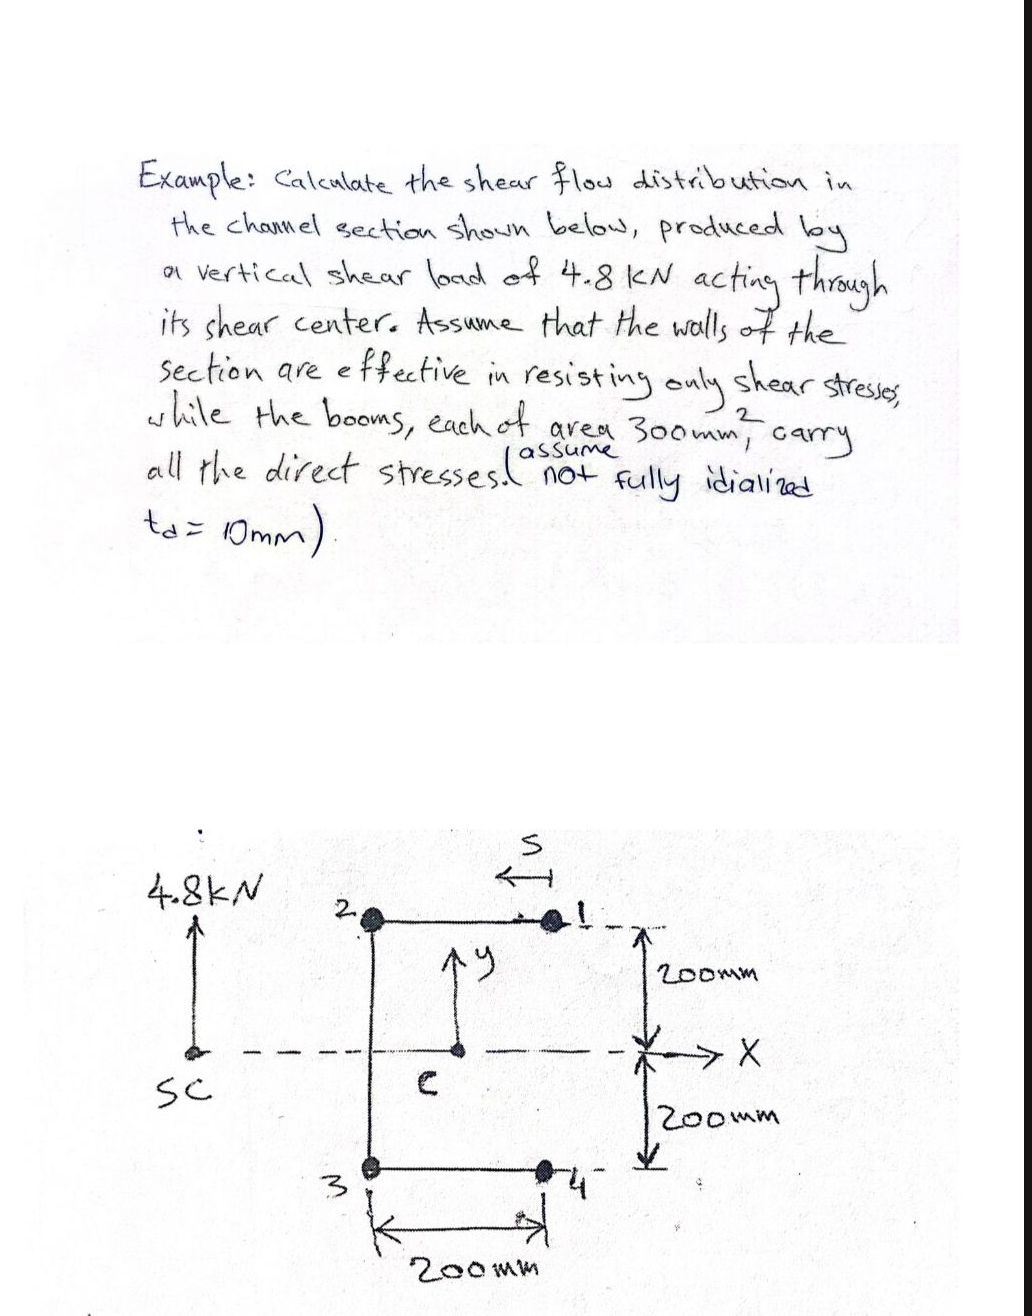 Example: Calculate the shear flow distribution in
the channel section shown below, produced by
a vertical shear load of 4.8 KN acting through
its shear center. Assume that the walls of the
section are effective in resisting only shear stresses,
while the booms, each of area 300mm², carry
all the direct stresses. (assume not fully idialized
td = 10mm).
S
4.8kN
2
1
y
200mm
X
C
SC
200mm
3
4
200mm